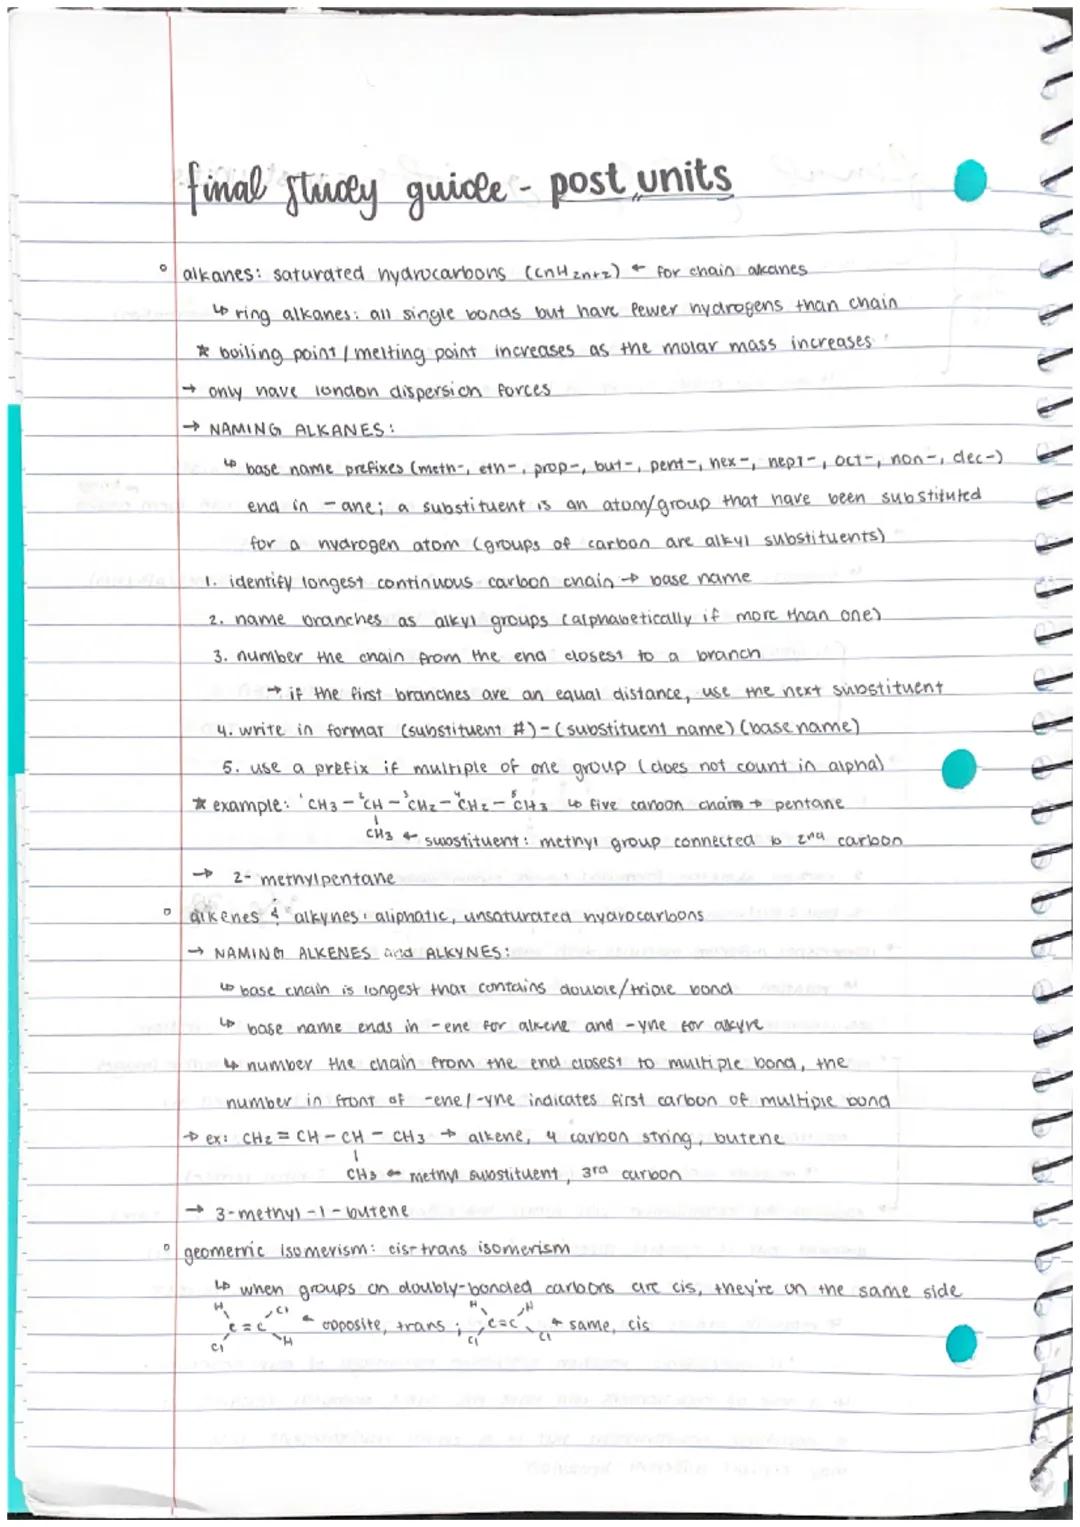 final study guide - post units
° alkanes: saturated hydrocarbons (CnH2n+2) ← for chain alkanes
↳ ring alkanes: all single bonds but have fewer hydrogens than chain
* boiling point / melting point increases as the molar mass increases
→ only have london dispersion forces
→ NAMING ALKANES:
↳ base name prefixes (meth-, eth-, prop-, but-, pent-, hex-, hept-, oct-, non-, dec-)
end in -ane; a substituent is an atom/group that have been substituted
for a hydrogen atom (groups of carbon are alkyl substituents)
1. identify longest continuous carbon chain → base name
2. name branches as alkyl groups (alphabetically if more than one)
3. number the chain from the end closest to a branch
→ if the first branches are an equal distance, use the next substituent
4. write in format (substituent #)-(substituent name)(base name)
5. use a prefix if multiple of one group (does not count in alpha)
* example: ¹CH3 - ²CH - ³CH2 - ⁴CH2 - ⁵CH3 ↳ five carbon chain → pentane
CH3 ← substituent: methyl group connected to 2nd carbon
→ 2-methylpentane
° alkenes & alkynes: aliphatic, unsaturated hydrocarbons
→ NAMING ALKENES and ALKYNES:
↳ base chain is longest that contains double/triple bond
↳ base name ends in -ene for alkene and -yne for alkyne
↳ number the chain from the end closest to multiple bond, the
number in front of -ene/-yne indicates first carbon of multiple bond
→ ex: CH2 = CH - CH - CH3 → alkene, 4 carbon string, butene
CH3 ← methyl substituent, 3rd carbon
→ 3-methyl-1-butene
° geometric isomerism: cis-trans isomerism
↳ when groups on doubly-bonded carbons are cis, they're on the same side
H Cl H H
C = C ← opposite, trans ; C=C ← same, cis
Cl H Cl Cl